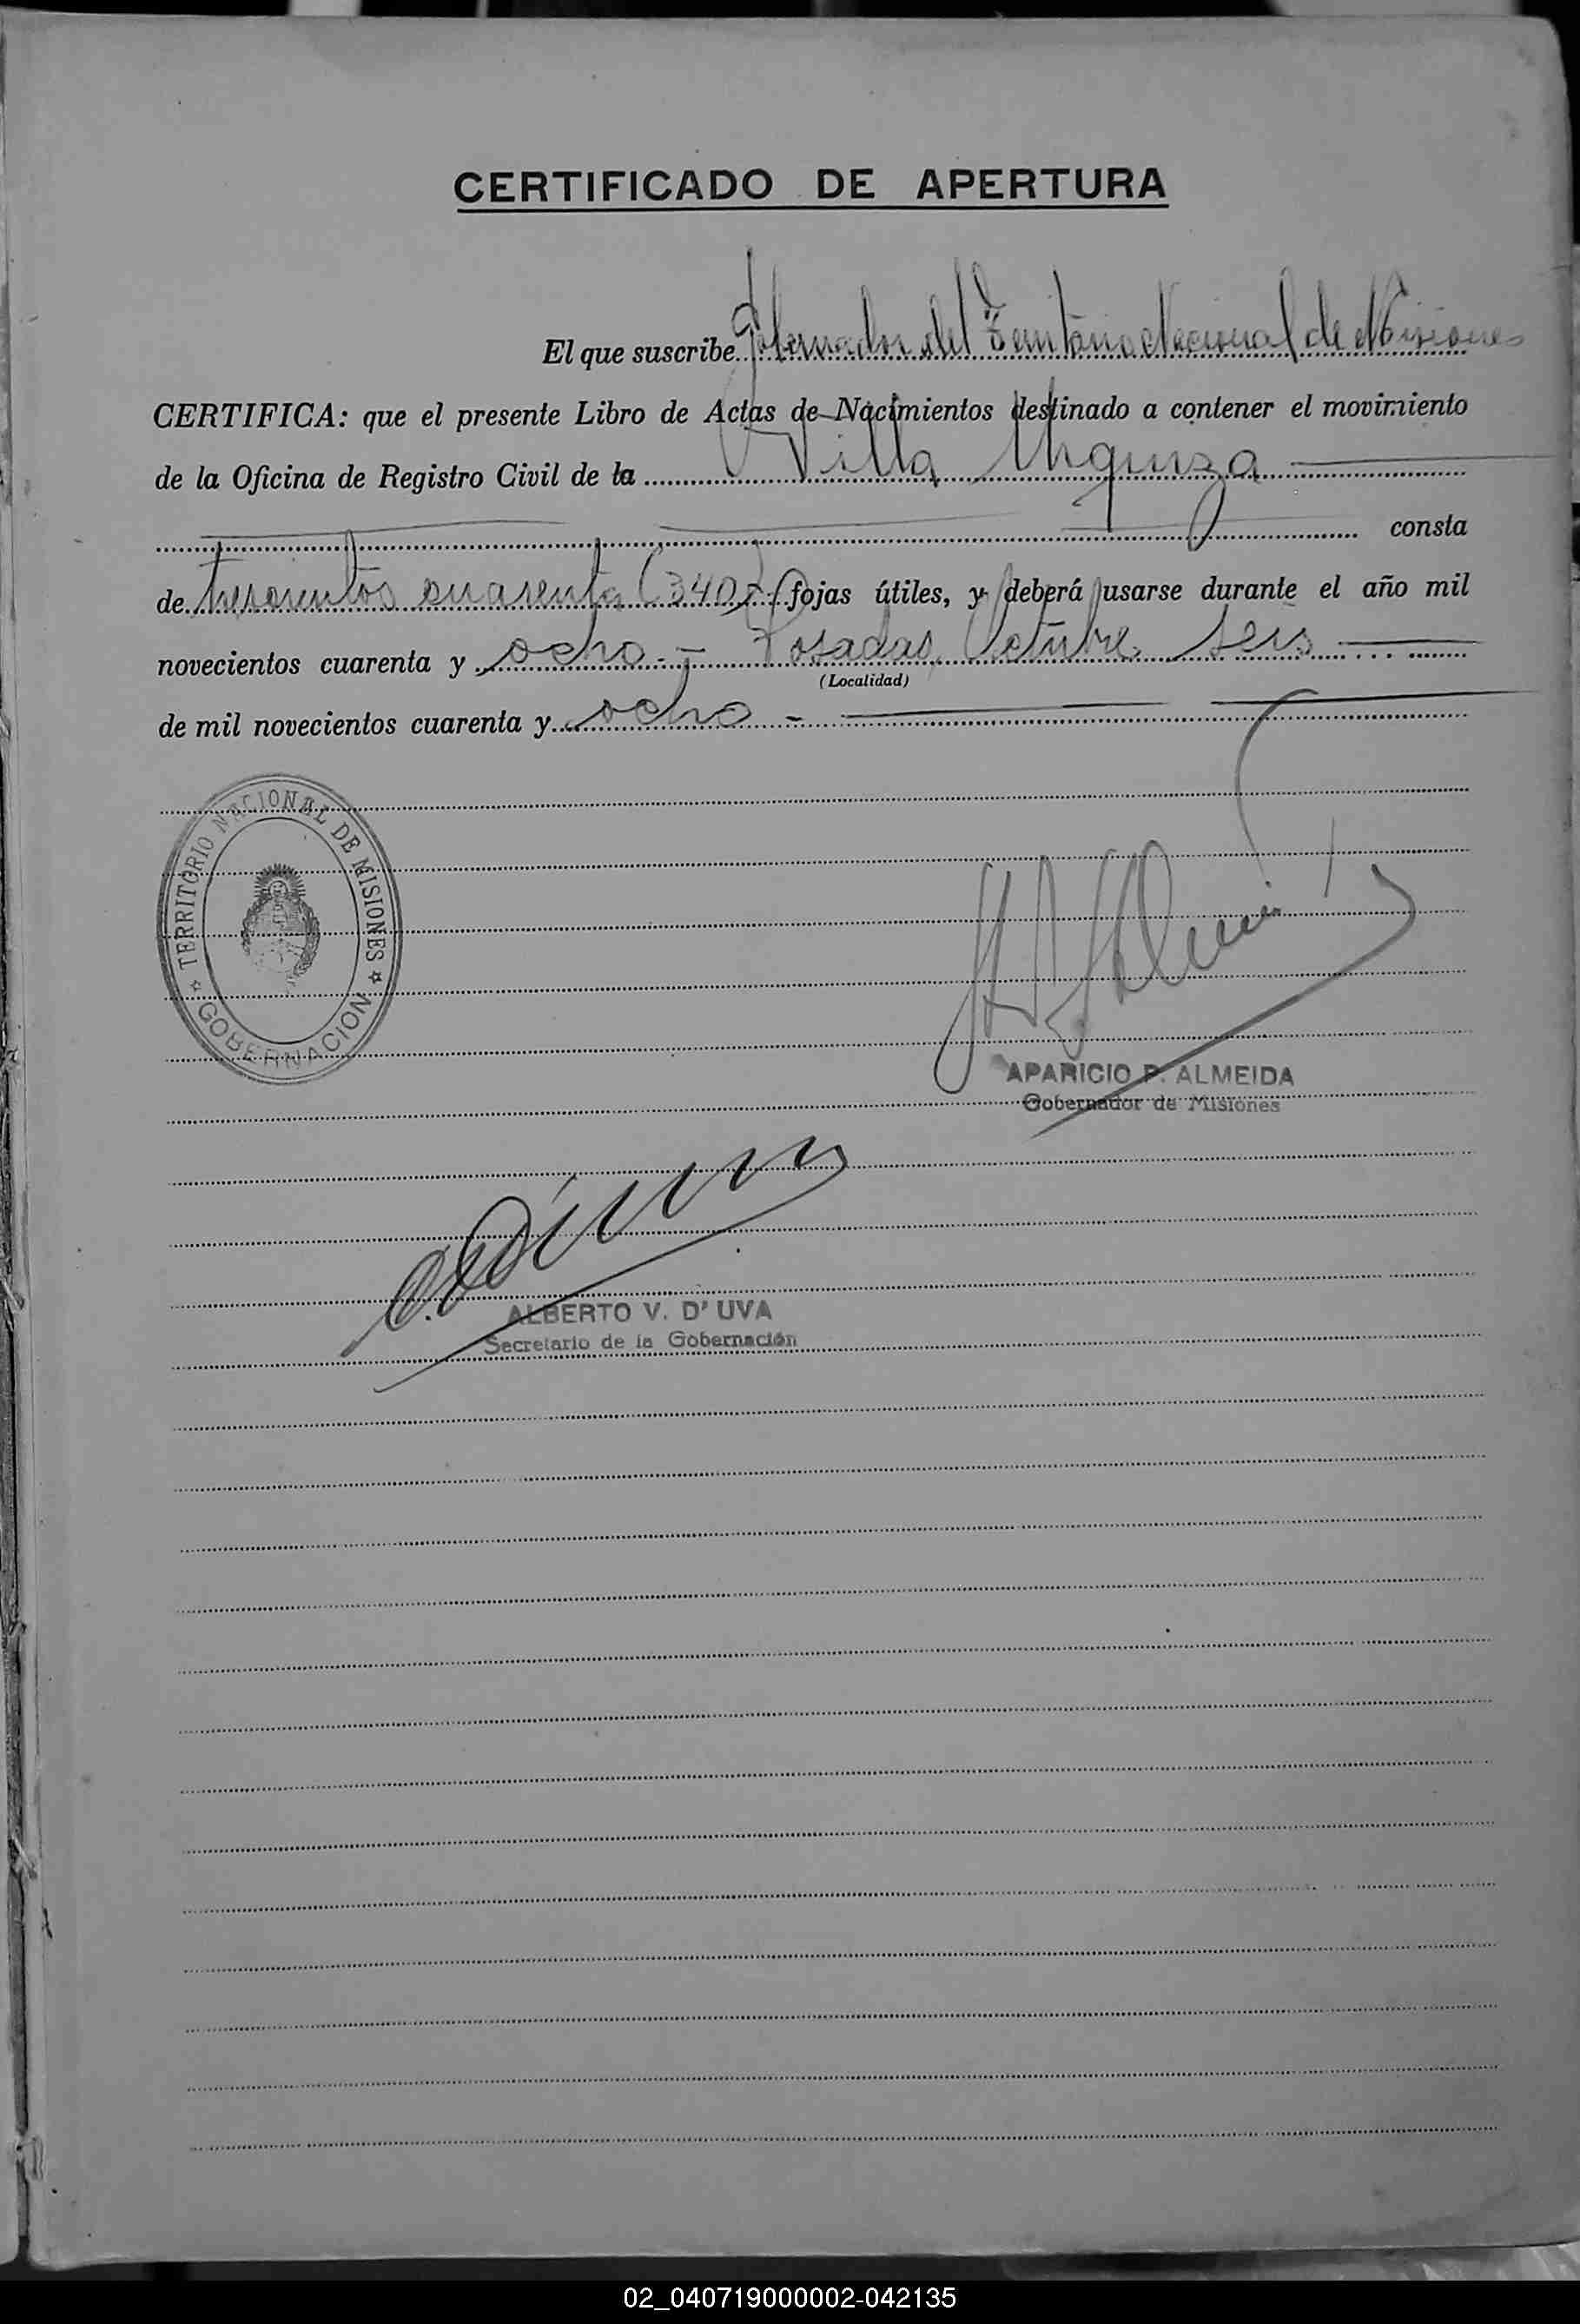 CERTIFICADO DE APERTURA
El que suscribe Gobernador del Territorio Nacional de Misiones
CERTIFICA: que el presente Libro de Actas de Nacimientos destinado a contener el movimiento
de la Oficina de Registro Civil de la Villa Urquiza
consta
de trescientos cuarenta (340) fojas útiles, y deberá usarse durante el año mil
novecientos cuarenta y ocho.- Posadas, Octubre seis
(Localidad)
de mil novecientos cuarenta y ocho -
TERRITORIO NACIONAL DE MISIONES
GOBERNACION
APARICIO P. ALMEIDA
Gobernador de Misiones
ALBERTO V. D' UVA
Secretario de la Gobernación
02_040719000002-042135